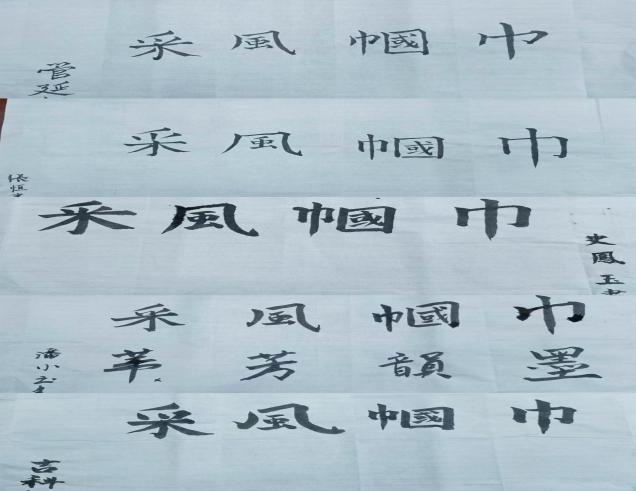 巾幗風采
管延
巾幗風采
巾幗風采
史鳳玉
巾幗風采
墨韻芳華
潘小玉
巾幗風采
吉科